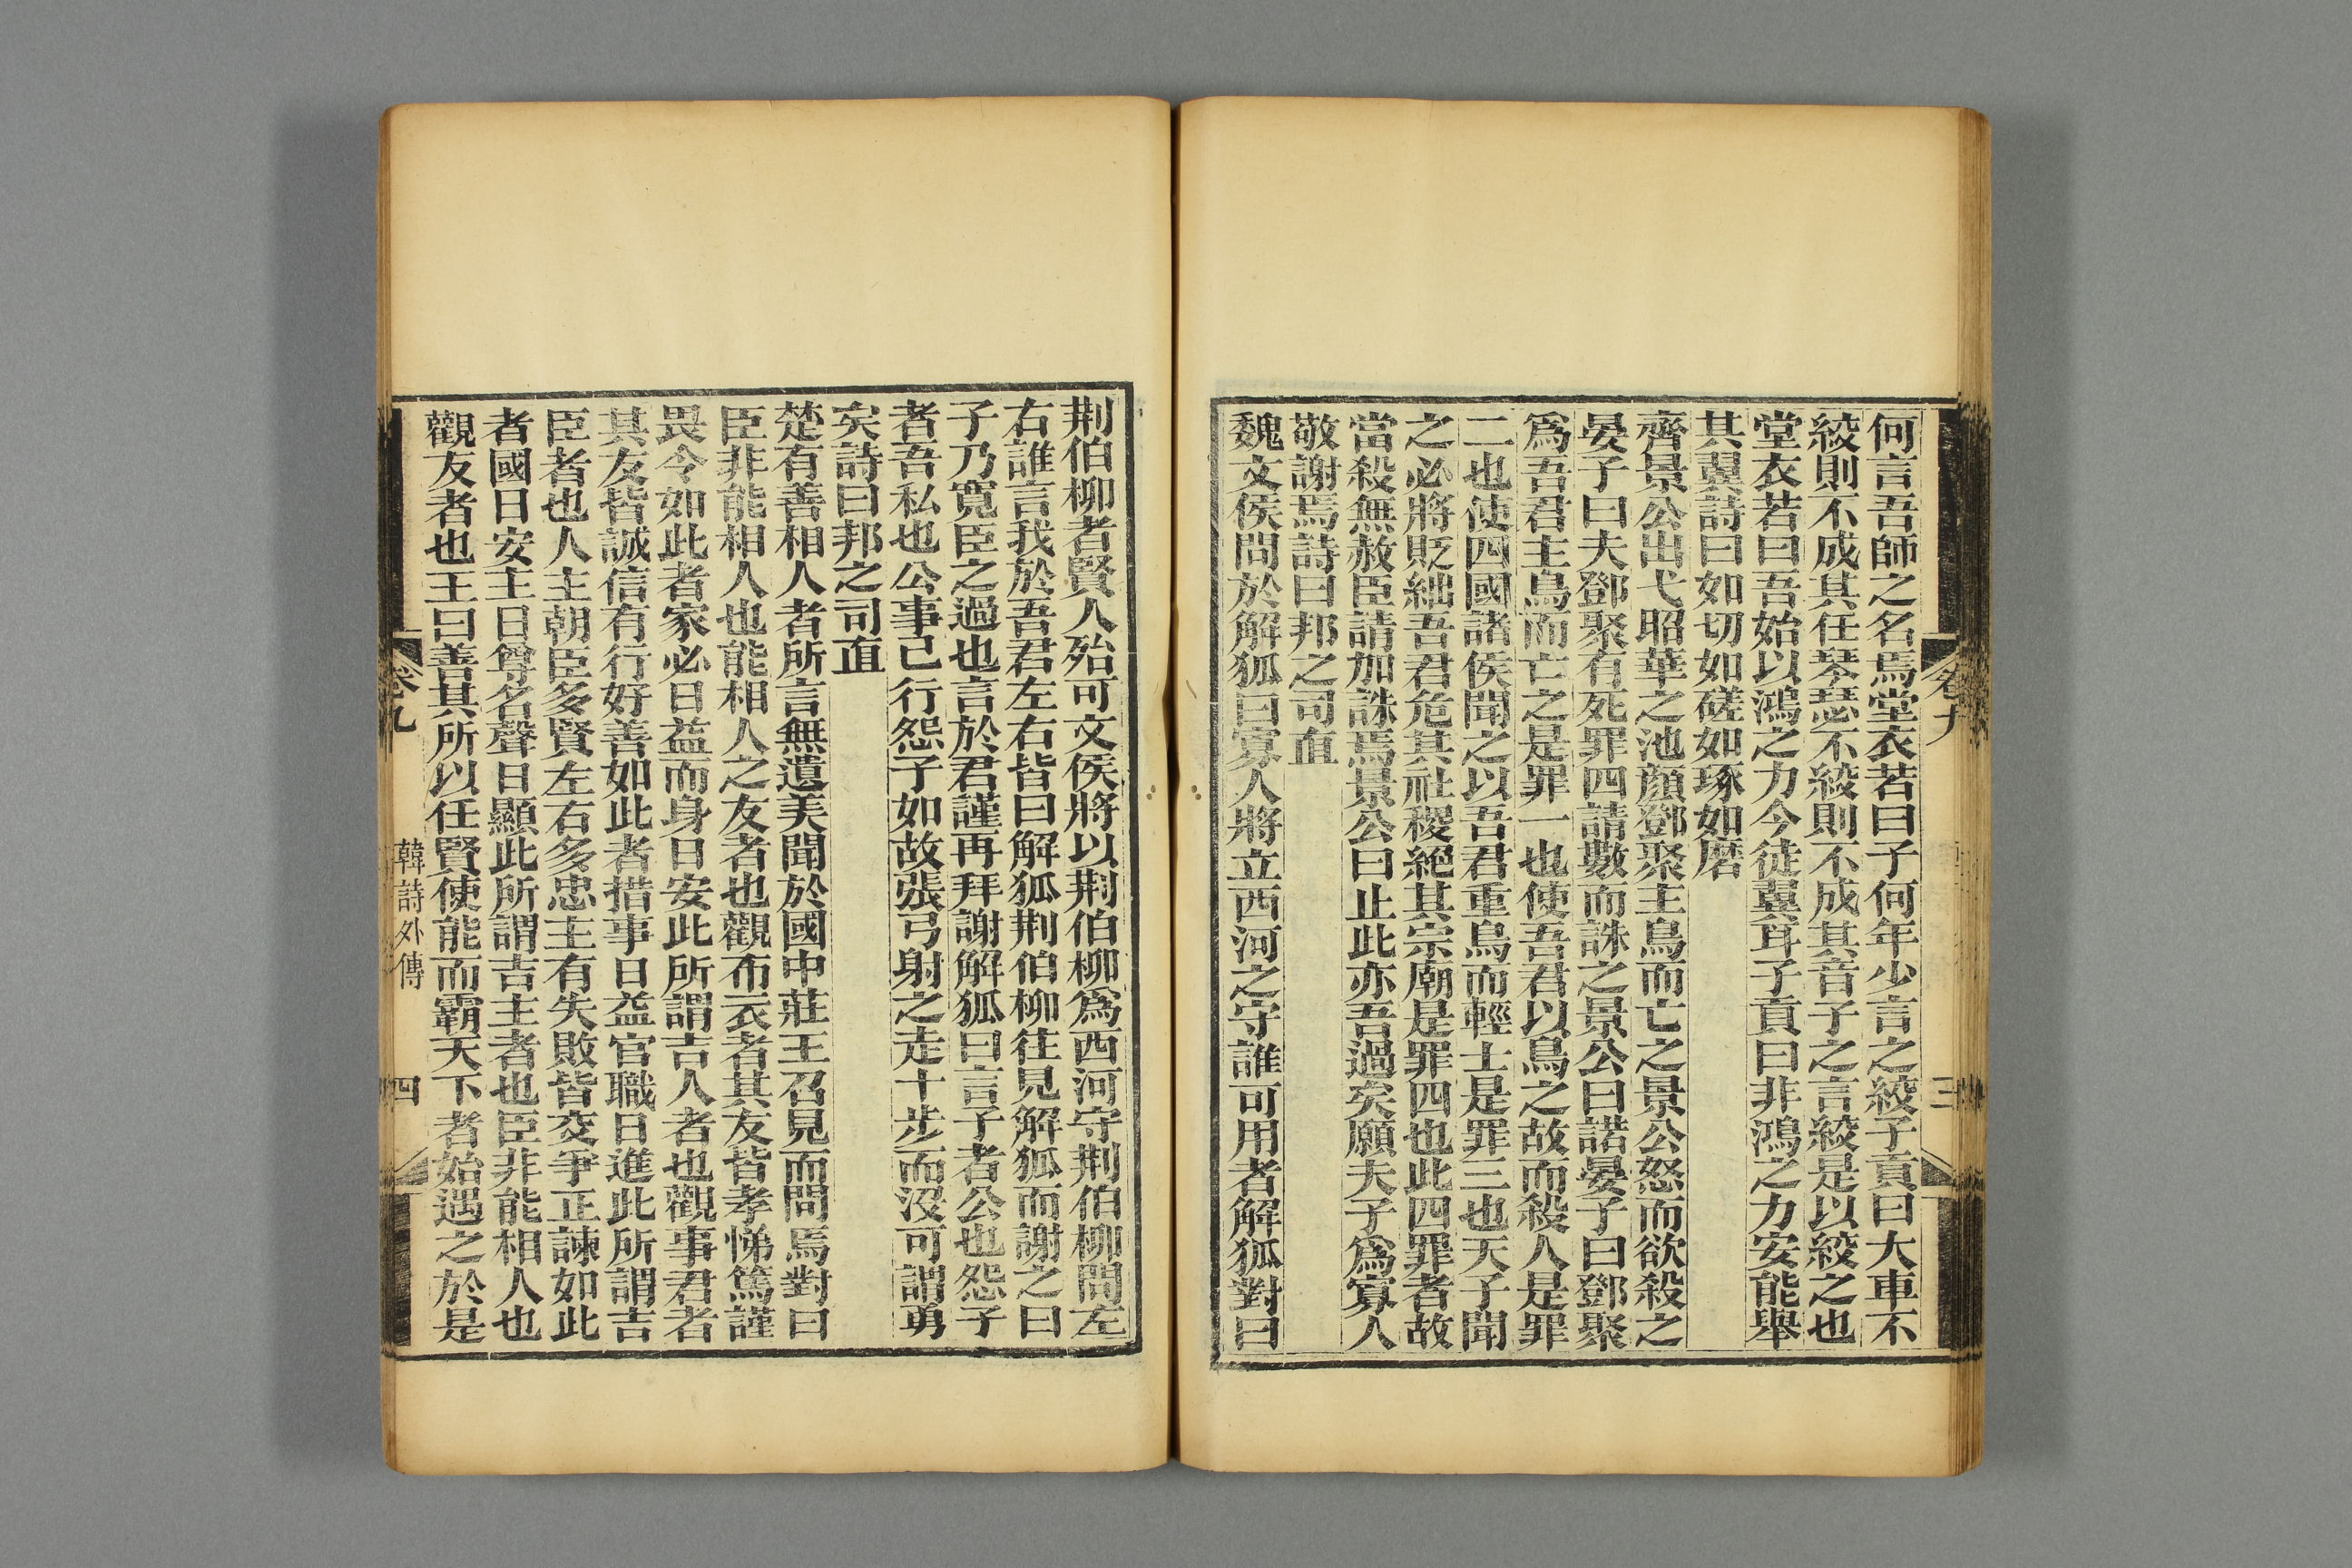 何言吾師之名焉堂衣若曰子何年少言之絞子貢曰大車不
絞則不成其任琴瑟不絞則不成其音子之言絞是以絞之也
堂衣若曰吾始以鴻之力今徒翼耳子貢曰非鴻之力安能舉
其翼詩曰如切如磋如琢如磨
齊景公出弋昭華之池顏鄧聚主鳥而亡之景公怒而欲殺之
晏子曰夫鄧聚有死罪四請數而誅之景公曰諾晏子曰鄧聚
爲吾君主鳥而亡之是罪一也使吾君以鳥之故而殺人是罪
二也使四國諸侯聞之以吾君重鳥而輕士是罪三也天子聞
之必將貶絀吾君危其社稷絕其宗廟是罪四也此四罪者故
當殺無赦臣請加誅焉景公曰止此亦吾過矣願夫子爲寡人
敬謝焉詩曰邦之司直
魏文侯問於解狐曰寡人將立西河之守誰可用者解狐對曰
卷九
三
荆伯柳者賢人殆可文侯將以荆伯柳爲西河守荆伯柳問左
右誰言我於吾君左右皆曰解狐荆伯柳往見解狐而謝之曰
子乃寬臣之過也言於君謹再拜謝解狐曰言子者公也怨子
者吾私也公事已行怨子如故張弓射之走十步而沒可謂勇
矣詩曰邦之司直
楚有善相人者所言無遺美聞於國中莊王召見而問焉對曰
臣非能相人也能相人之友者也觀布衣者其友皆孝悌篤謹
畏令如此者家必日益而身日安此所謂吉人者也觀事君者
其友皆誠信有行好善如此者措事日益官職日進此所謂吉
臣者也人主朝臣多賢左右多忠主有失敗皆交爭正諫如此
者國日安主日尊名聲日顯此所謂吉主者也臣非能相人也
觀友者也王曰善其所以任賢使能而霸天下者始遇之於是
卷九
韓詩外傳
四